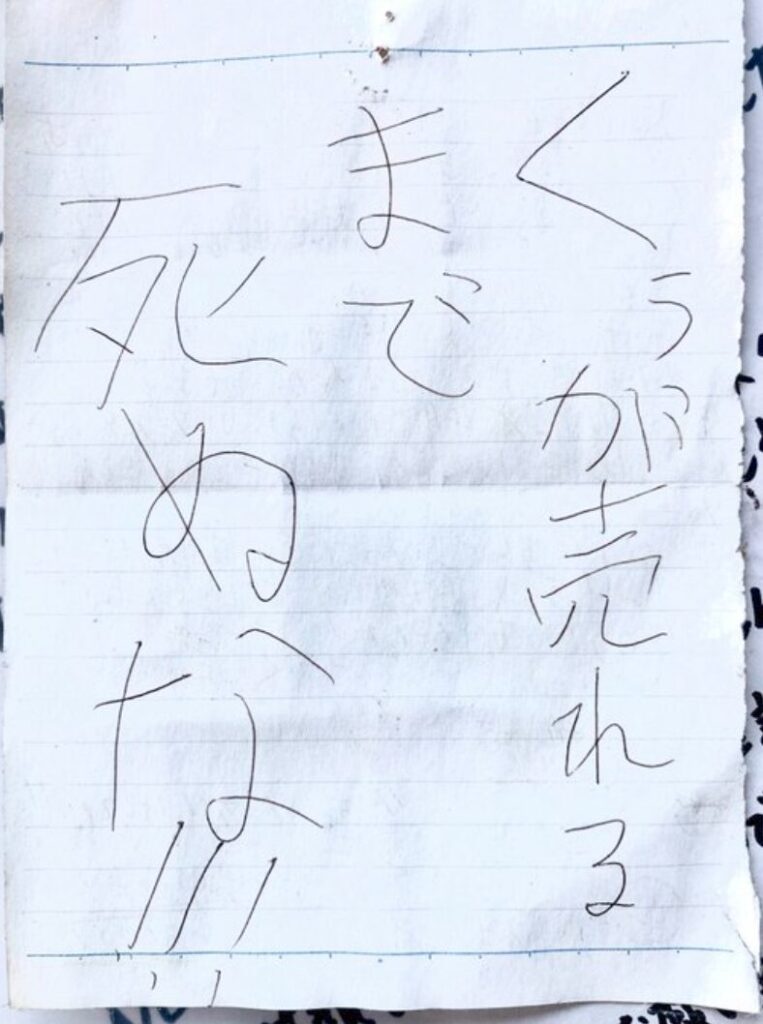 くぅが売れる
まで
死ぬな!!!